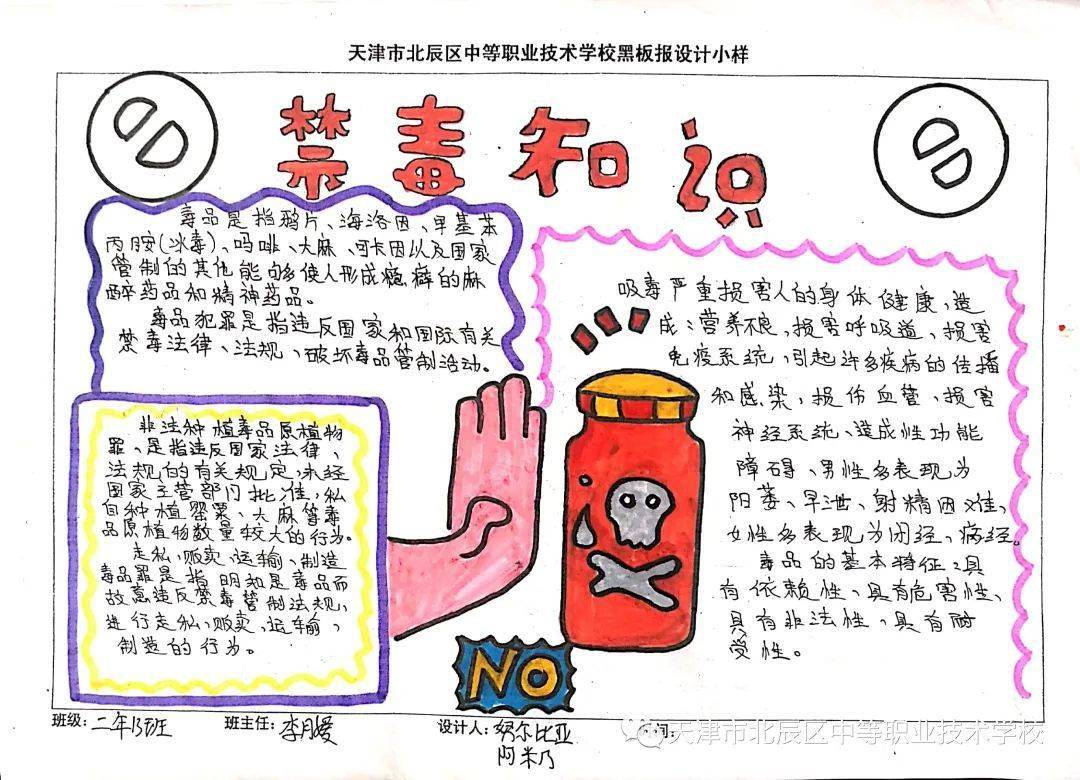 天津市北辰区中等职业技术学校黑板报设计小样
禁毒知识
毒品是指鸦片、海洛因、甲基苯
丙胺(冰毒)、吗啡、大麻、可卡因以及国家
管制的其他能够使人形成瘾癖的麻
醉药品和精神药品。
毒品犯罪是指违反国家和国际有关
禁毒法律、法规、破坏毒品管制活动。
非法种植毒品原植物
罪、是指违反国家法律、
法规的有关规定,未经
国家主管部门批准,私
自种植罂粟、大麻等毒
品原植物数量较大的行为。
走私、贩卖、运输、制造
毒品罪是指明知是毒品而
故意违反禁毒管制法规,
进行走私、贩卖、运输、
制造的行为。
吸毒严重损害人的身体健康、造
成:营养不良、损害呼吸道、损害
免疫系统、引起许多疾病的传播
和感染、损伤血管、损害
神经系统、造成性功能
障碍、男性多表现为
阳萎、早泄、射精困难、
女性多表现为闭经、痛经。
毒品的基本特征:具
有依赖性、具有危害性、
具有非法性、具有耐
受性。
NO
班级:二年13班 班主任:李月媛 设计人:努尔比亚
阿米乃
天津市北辰区中等职业技术学校